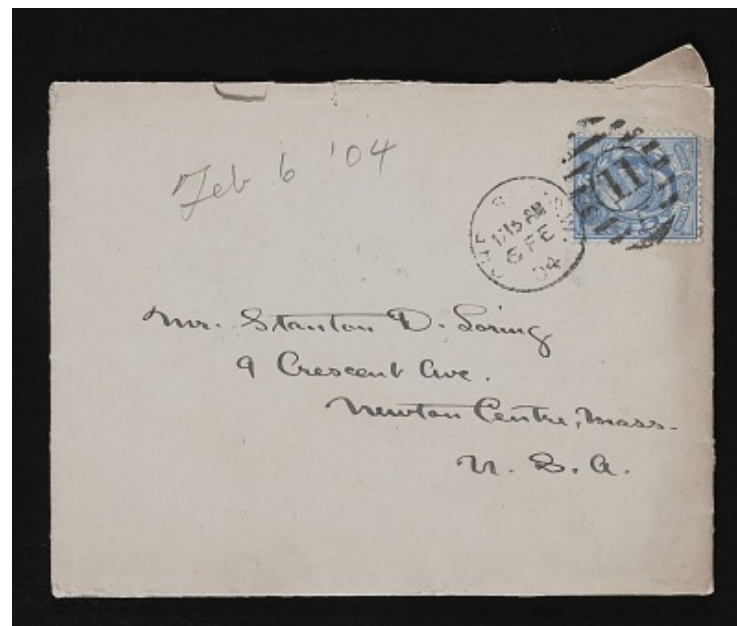 Feb 6 '04
12 15 AM
6 FE
04
11
Mr. Stanton D. Loring
9 Crescent Ave.
Newton Centre, Mass.
U. S. A.